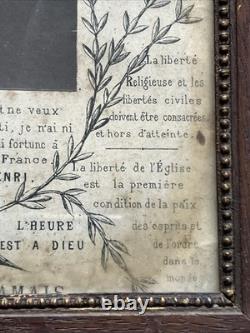 La liberté
Religieuse et les
libertés civiles
doivent être consacrées
et hors d'atteinte.
ne veux
ti, je n'ai ni
fortune à
France.
NRI.
La liberté de l'Église
est la première
condition de la paix
des esprits et
de l'ordre
dans le
monde
L'HEURE
EST A DIEU
JAMAIS